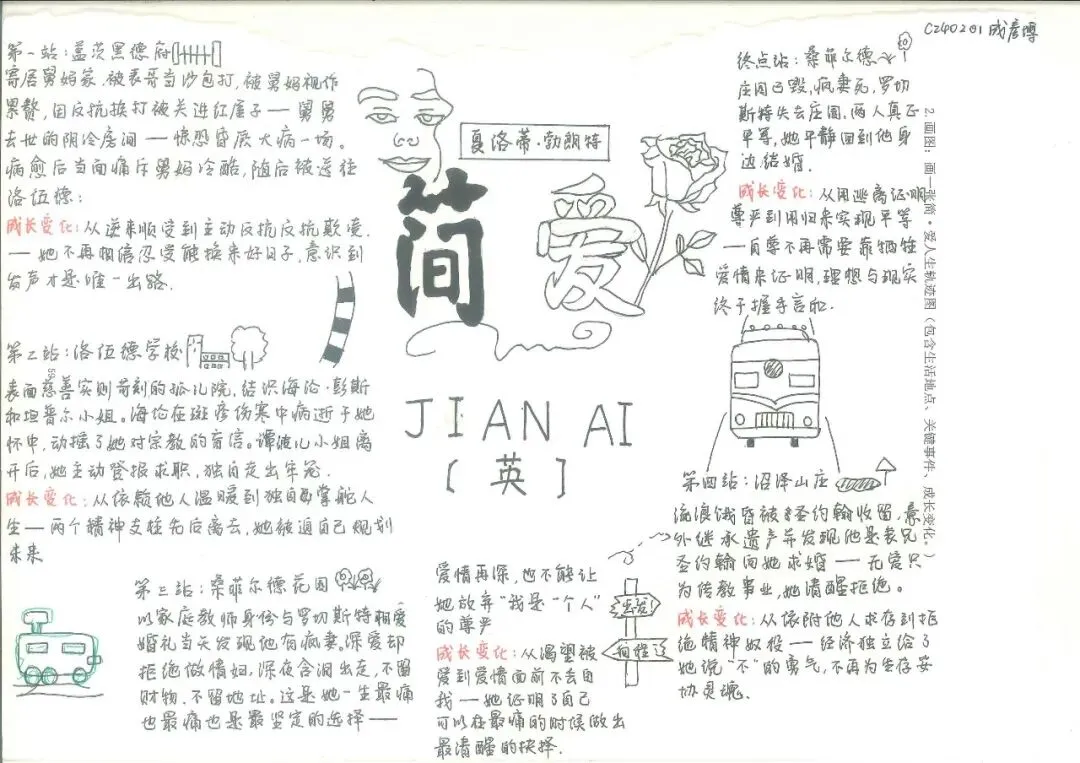 C240201
第一站:盖茨黑德府
寄居舅妈家,被表哥当沙包打,被舅妈视作
累赘,因反抗挨打被关进红屋子——舅舅
去世的阴冷房间——惊恐昏厥大病一场。
病愈后当面痛斥舅妈冷酷,随后被送往
洛伍德:
成长变化:从逆来顺受到主动反抗反抗欺凌.
——她不再相信忍受能换来好日子,意识到
发声才是唯一出路.
第二站:洛伍德学校
表面慈善实则苛刻的孤儿院,结识海伦·彭斯
和坦普尔小姐。海伦在斑疹伤寒中病逝于她
怀中,动摇了她对宗教的盲信。谭波儿小姐离
开后,她主动登报求职,独自走出牢笼.
成长变化:从依赖他人温暖到独自掌舵人
生——两个精神支柱先后离去,她被逼自己规划
未来
第三站:桑菲尔德花园
以家庭教师身份与罗切斯特相爱
婚礼当天发现他有疯妻,深爱却
拒绝做情妇,深夜含泪出走,不留
财物,不留地址。这是她一生最痛
也最痛也是最坚定的选择——
爱情再深,也不能让
她放弃“我是一个人”
的尊严
成长变化:从渴望被
爱到爱情面前不丢自
我——她证明了自己
可以在最痛的时候做出
最清醒的抉择.
夏洛蒂·勃朗特
简爱
JIAN AI
[英]
出发!
第四站:沼泽山庄
流浪饿昏被圣约翰收留,意
外继承遗产并发现他是表兄
圣约翰向她求婚——无爱只
为传教事业,她清醒拒绝。
成长变化:从依附他人求存到拒
绝精神奴役——经济独立给了
她说“不”的勇气,不再为生存妥
协灵魂.
终点站:桑菲尔德
庄园已毁,疯妻死,罗切
斯特失去庄园,两人真正
平等,她平静回到他身
边结婚.
成长变化:从用逃离证明
尊严到用归来实现平等
——自尊不再需要靠牺牲
爱情来证明,理想与现实
终于握手言和.
2.画图:画一张简·爱人生轨迹图(包含生活地点、关键事件、成长变化。)